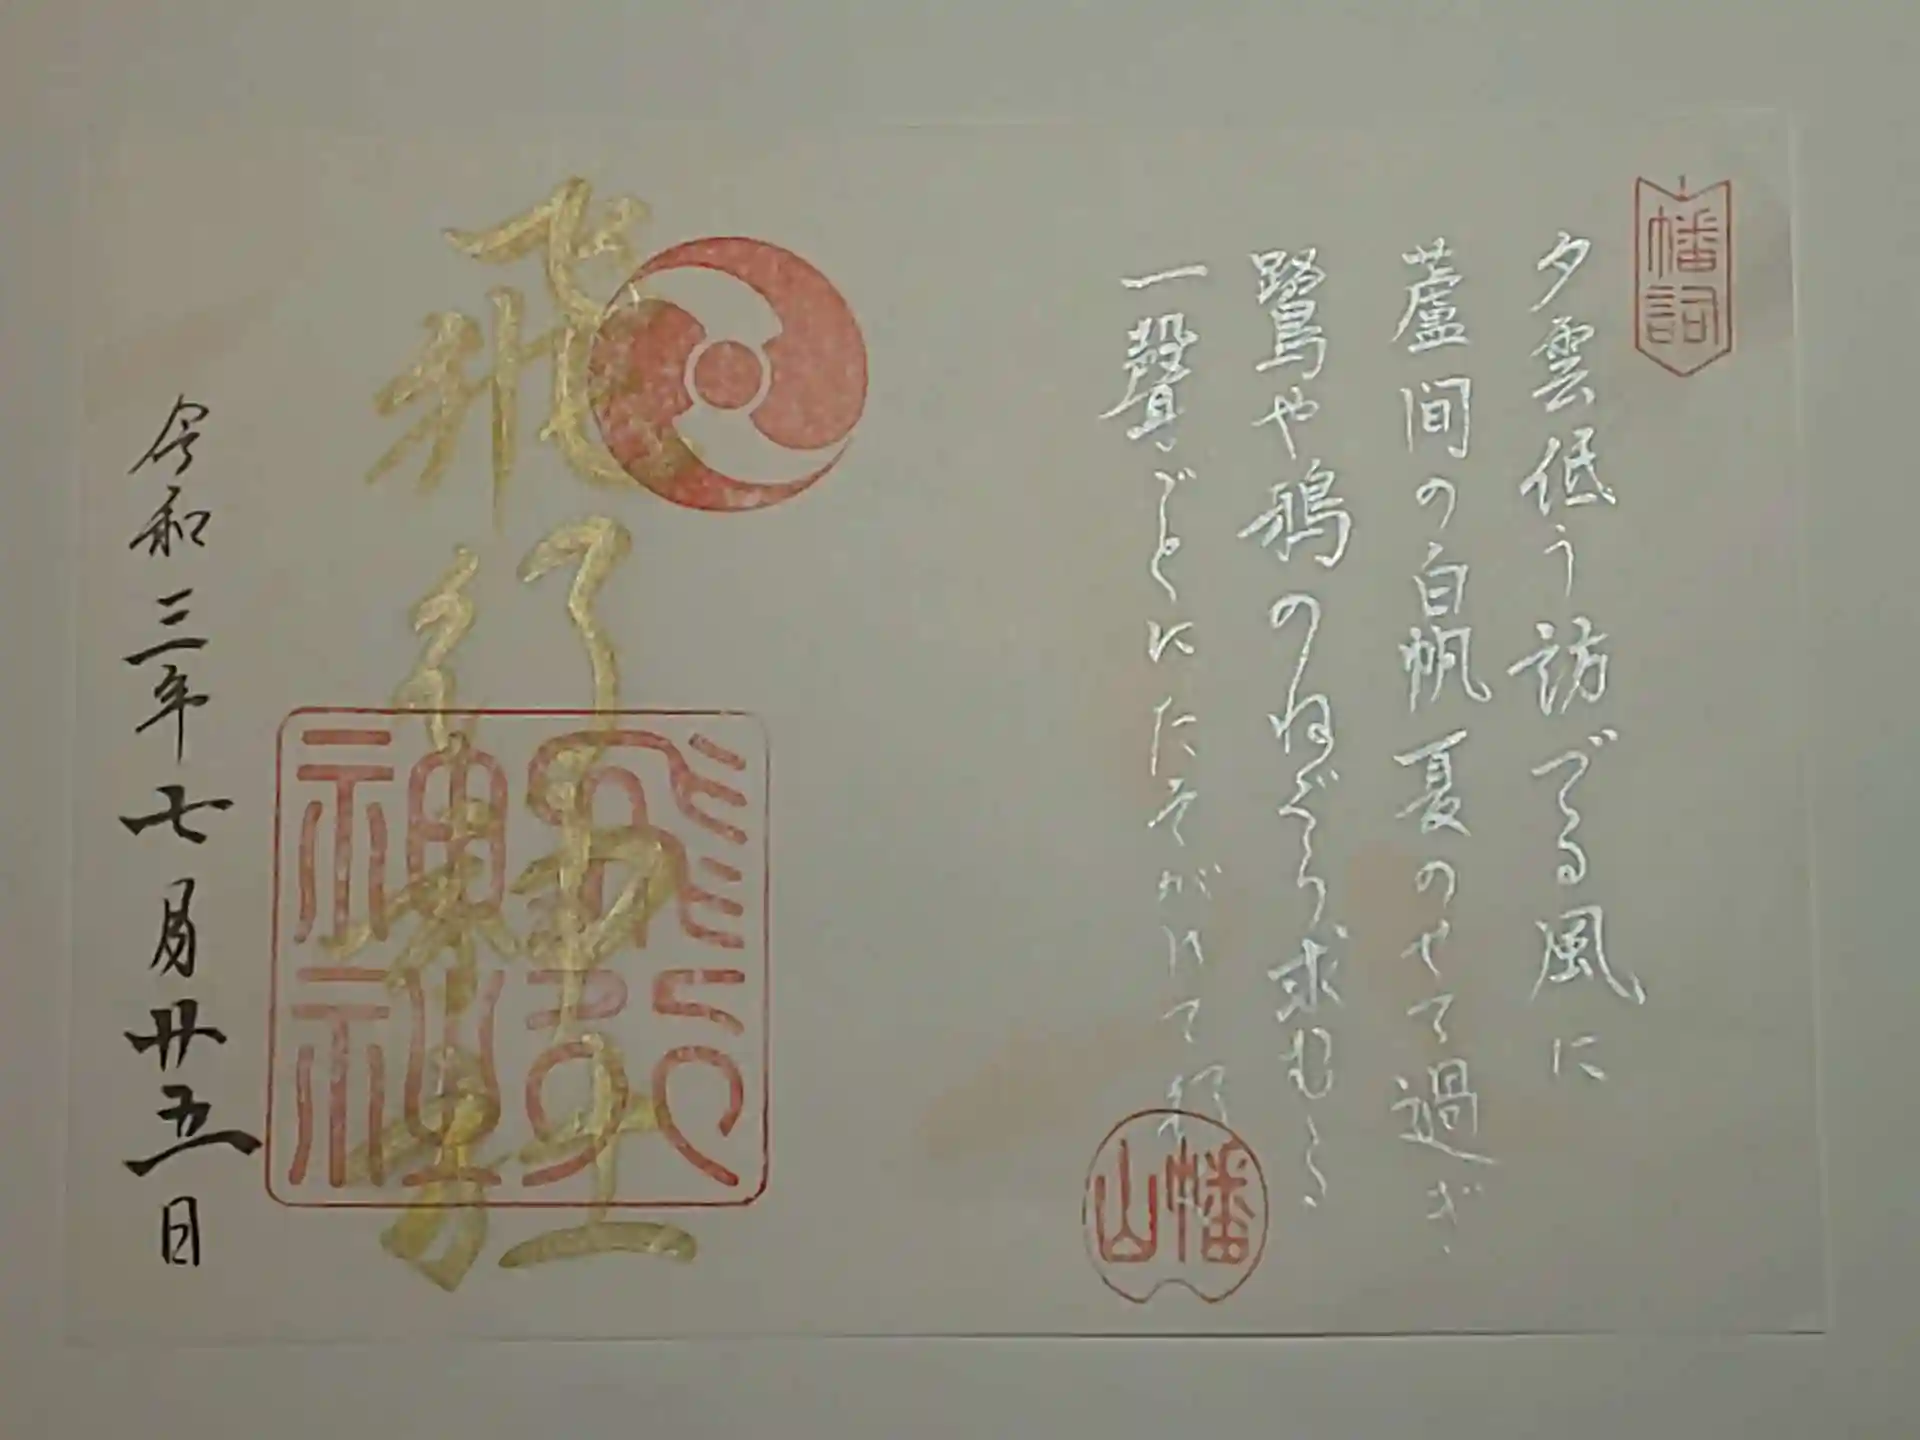 幡詞
夕雲低う訪づる風に
蘆間の白帆夏のせて過ぎ
鷺や鴉のねぐら求むる
一聲ごとにたそがれて行く
幡山
飛行神社
飛行神社
令和三年七月廿五日